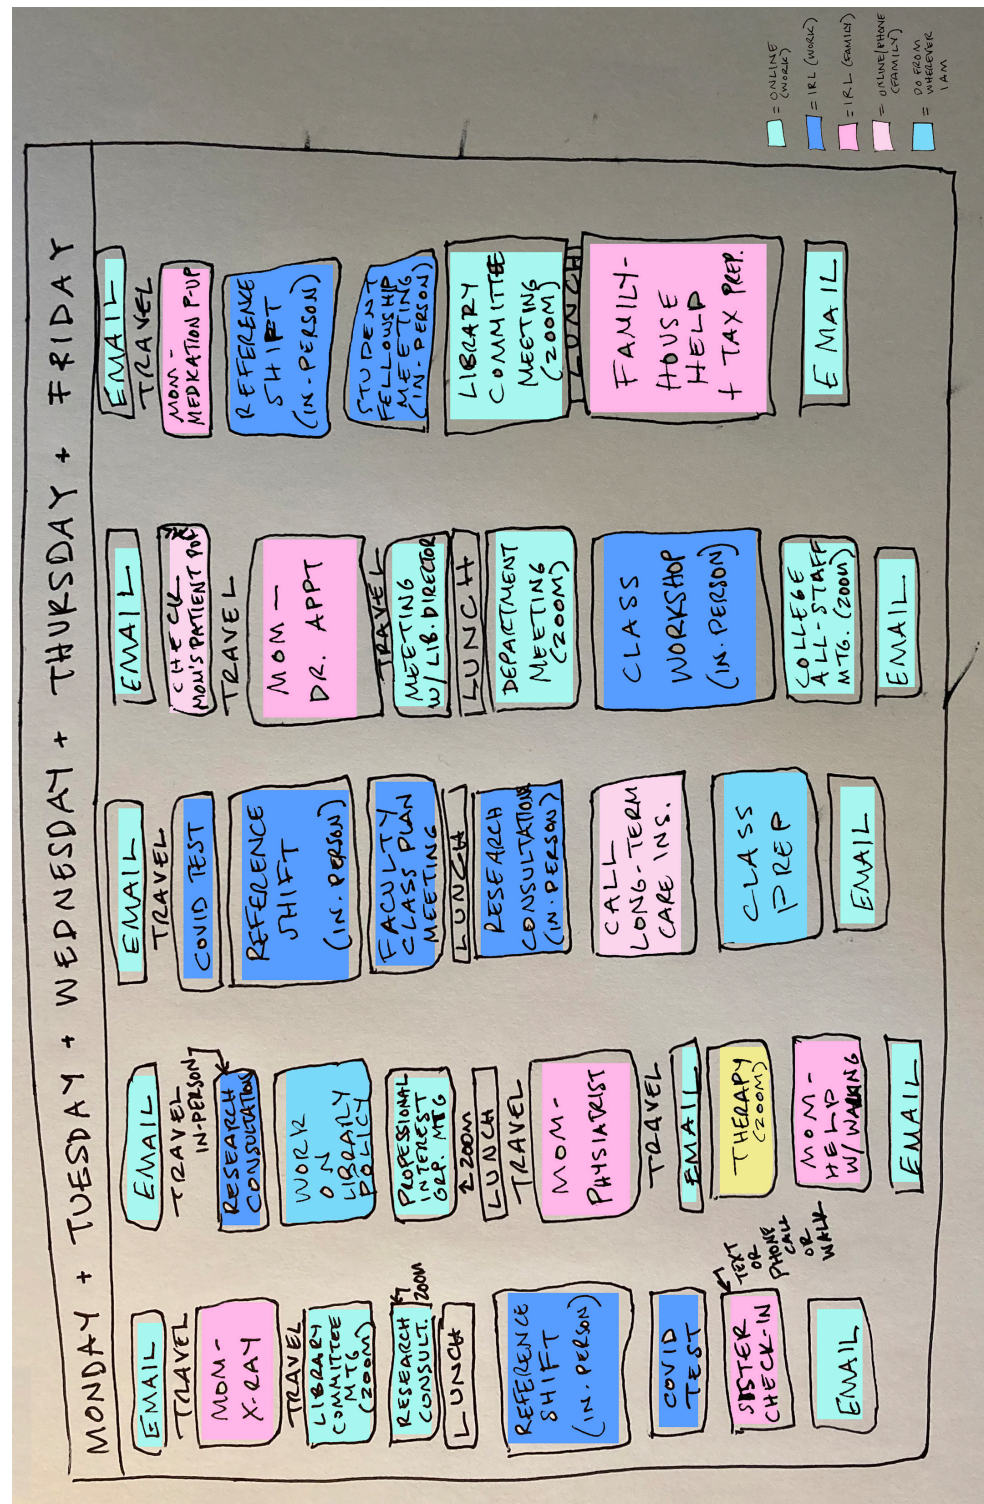 MONDAY + TUESDAY + WEDNESDAY + THURSDAY + FRIDAY
EMAIL
TRAVEL
MOM -
X-RAY
TRAVEL
LIBRARY
COMMITTEE
MTG
(ZOOM)
RESEARCH
CONSULT.
ZOOM
LUNCH
REFERENCE
SHIFT
(IN. PERSON)
COVID
TEST
SISTER
CHECK-IN
TEXT
OR
PHONE
CALL
OR
WALK
EMAIL
EMAIL
TRAVEL
IN-PERSON
RESEARCH
CONSULTATION
WORK
ON
LIBRARY
POLICY
PROFESSIONAL
INTEREST
GRP. MTG
ZOOM
LUNCH
TRAVEL
MOM -
PHYSIATRIST
TRAVEL
EMAIL
THERAPY
(ZOOM)
MOM -
HELP
W/ WALKING
EMAIL
EMAIL
TRAVEL
COVID TEST
REFERENCE
SHIFT
(IN. PERSON)
FACULTY
CLASS PLAN
MEETING
LUNCH
RESEARCH
CONSULTATIONS
(IN. PERSON)
CALL
LONG-TERM
CARE INS.
CLASS
PREP
EMAIL
EMAIL
CHECK
MOM'S PATIENT
TRAVEL
MOM -
DR. APPT
TRAVEL
MEETING
W/ LIB. DIRECTOR
LUNCH
DEPARTMENT
MEETING
(ZOOM)
CLASS
WORKSHOP
(IN. PERSON)
COLLEGE
ALL-STAFF
MTG. (ZOOM)
EMAIL
EMAIL
TRAVEL
MOM -
MEDICATION P-UP
REFERENCE
SHIFT
(IN-PERSON)
STUDENT
FELLOWSHIP
MEETING
(IN-PERSON)
LIBRARY
COMMITTEE
MEETING
(ZOOM)
LUNCH
FAMILY-
HOUSE
HELP
+ TAX PREP.
EMAIL
= ONLINE
(WORK)
= IRL (WORK)
= IRL (FAMILY)
= ONLINE/PHONE
(FAMILY)
= DO FROM
WHEREVER
I AM